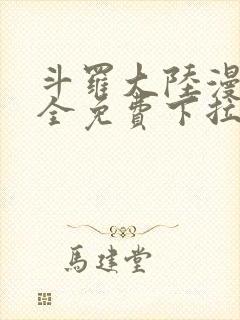 斗羅大陸漫
全免費下拉
馬建堂